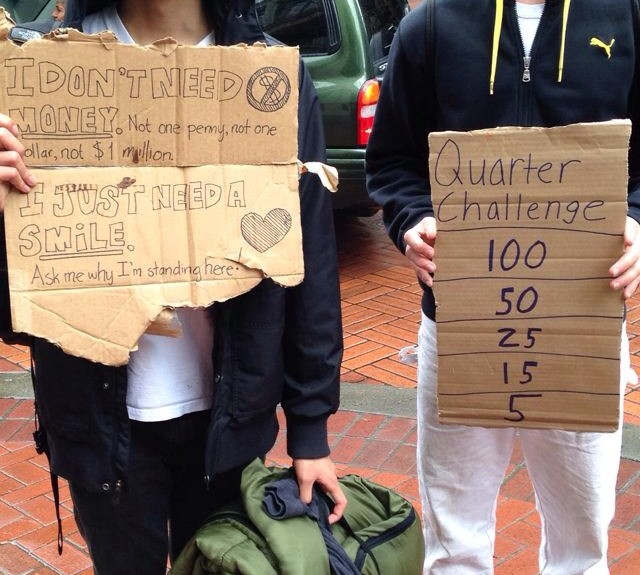 I DON'T NEED
MONEY. Not one penny, not one
dollar, not $1 million.
I JUST NEED A
SMiLE.
Ask me why I'm standing here.
Quarter
Challenge
100
50
25
15
5